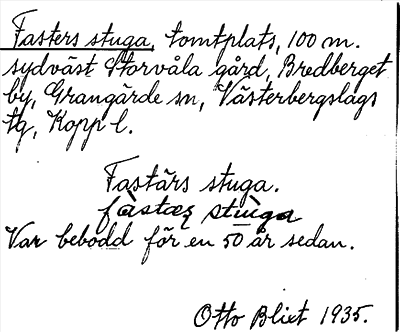 Fasters stuga, tomtplats, 100 m.
sydväst Storvåla gård, Bredberget
by, Grangärde sn, Västerbergslags
tg, Kopp l.
Fastärs stuga.
stùga
Var bebodd för en 50 år sedan.
Otto Blixt 1935.